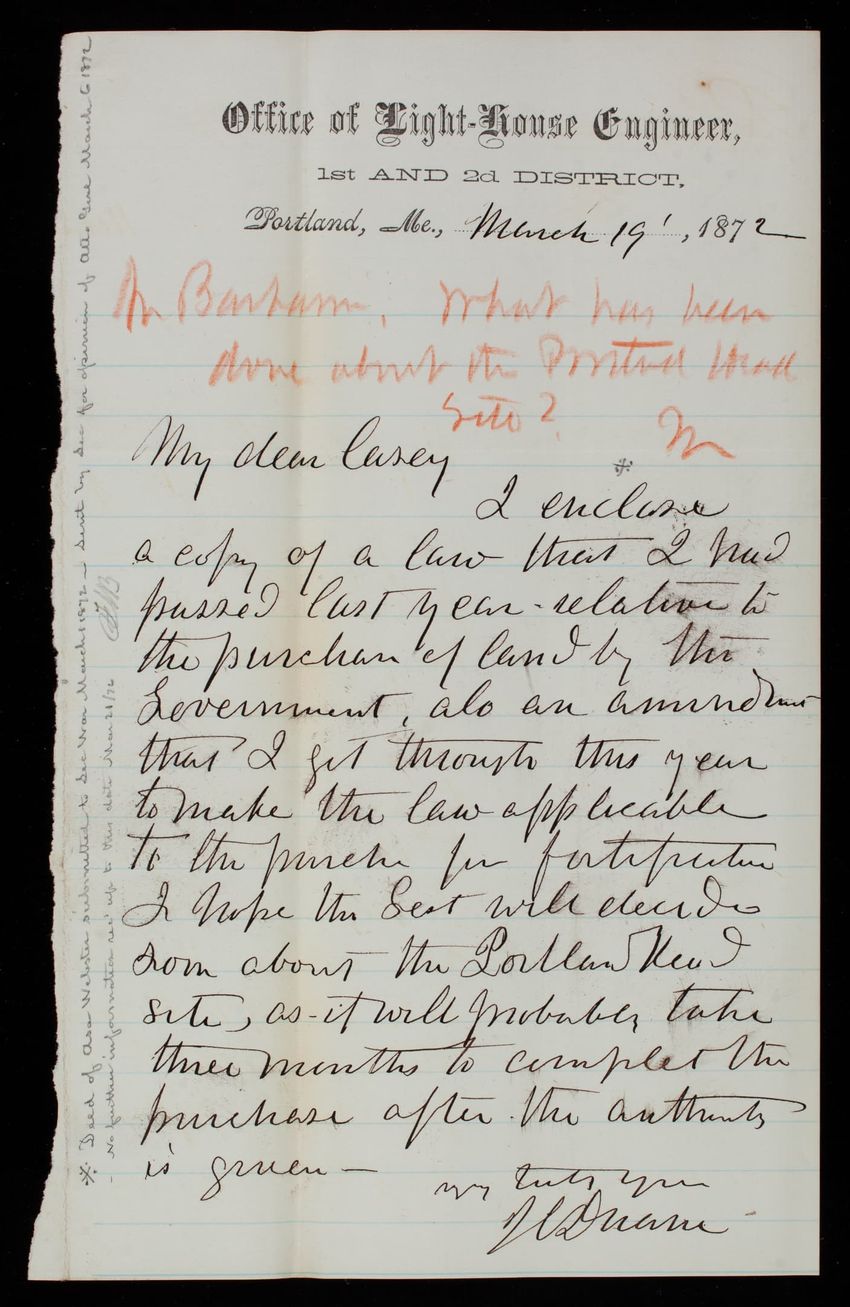 Office of Light-House Engineer,
1st AND 2d DISTRICT,
Portland, Me., March 19', 1872
Mr Barham, What has been
done about the Portland Head
Site?
My dear Casey
*
I enclose
a copy of a law that I had
passed last year - relative to
the purchase of land by the
Government, also an amendment
that I got through this year
to make the law applicable
to the purchase for fortification
I hope the Sect will decide
soon about the Portland Head
site, as it will probably take
three months to complete the
purchase after the authority
is given —
very truly yours
J C Duane
* Deed of Asa Webster submitted to Sec War March 1 1872 — Sent by Sec for opinion of Att. Genl March 6 1872
- No further information rec'd up to this date Mar 21/72